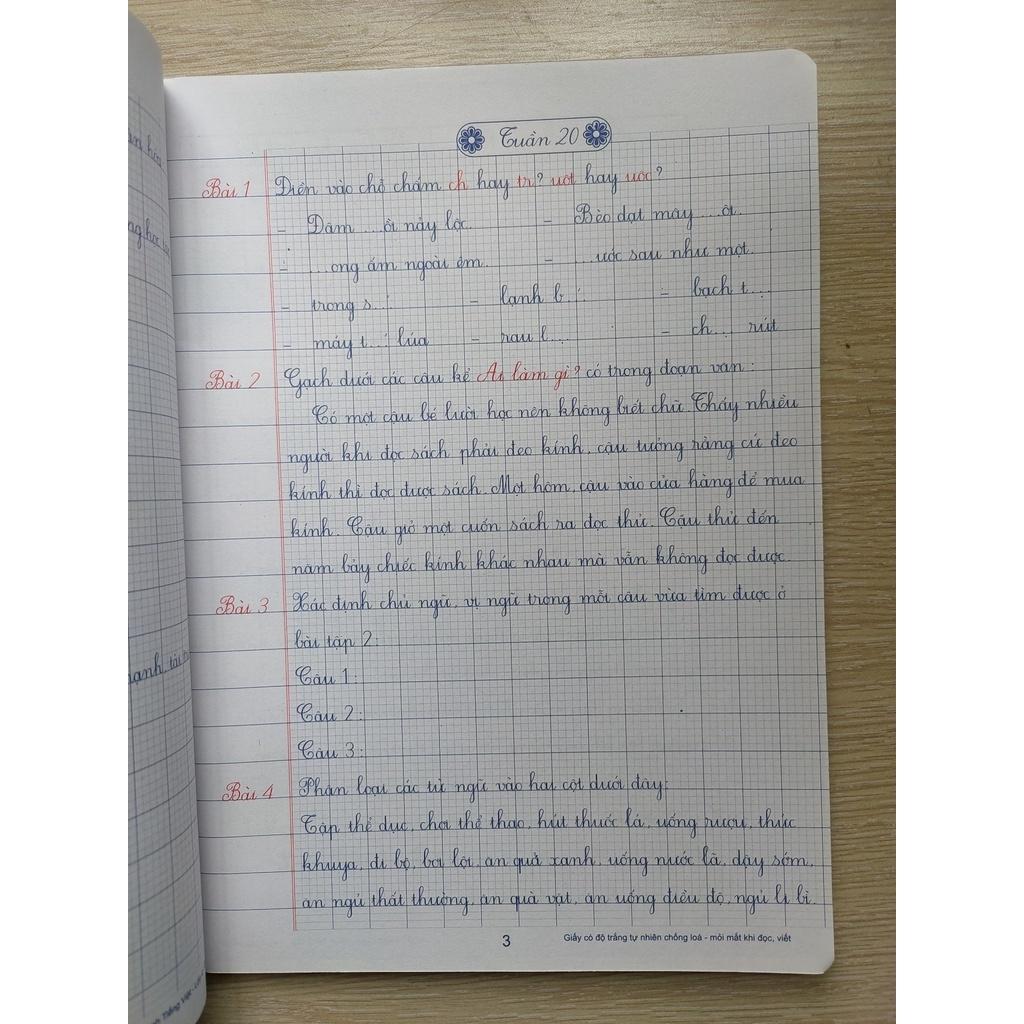 Tuần 20
Bài 1 Điền vào chỗ chấm ch hay tr? uôt hay uôc?
- Đâm ...ồi nảy lộc. - Bèo dạt mây ...ôi.
- ...ong ấm ngoài êm. - ...ước sau như một.
- trong s...: - lạnh b...: - bạch t...
- máy t...: lúa - rau l... - ch... rút
Bài 2 Gạch dưới các câu kể Ai làm gì? có trong đoạn văn:
Có một cậu bé lười học nên không biết chữ. Thấy nhiều
người khi đọc sách phải đeo kính, cậu tưởng rằng cứ đeo
kính thì đọc được sách. Một hôm, cậu vào cửa hàng để mua
kính. Cậu giở một cuốn sách ra đọc thử. Cậu thử đến
năm bảy chiếc kính khác nhau mà vẫn không đọc được.
Bài 3 Xác định chủ ngữ, vị ngữ trong mỗi câu vừa tìm được ở
bài tập 2:
Câu 1:
Câu 2:
Câu 3:
Bài 4 Phân loại các từ ngữ vào hai cột dưới đây:
Tập thể dục, chơi thể thao, hút thuốc lá, uống rượu, thức
khuya, đi bộ, bơi lội, ăn quả xanh, uống nước lã, dậy sớm,
ăn ngủ thất thường, ăn quà vặt, ăn uống điều độ, ngủ li bì.
3
Giấy có độ trắng tự nhiên chống loá - mỏi mắt khi đọc, viết